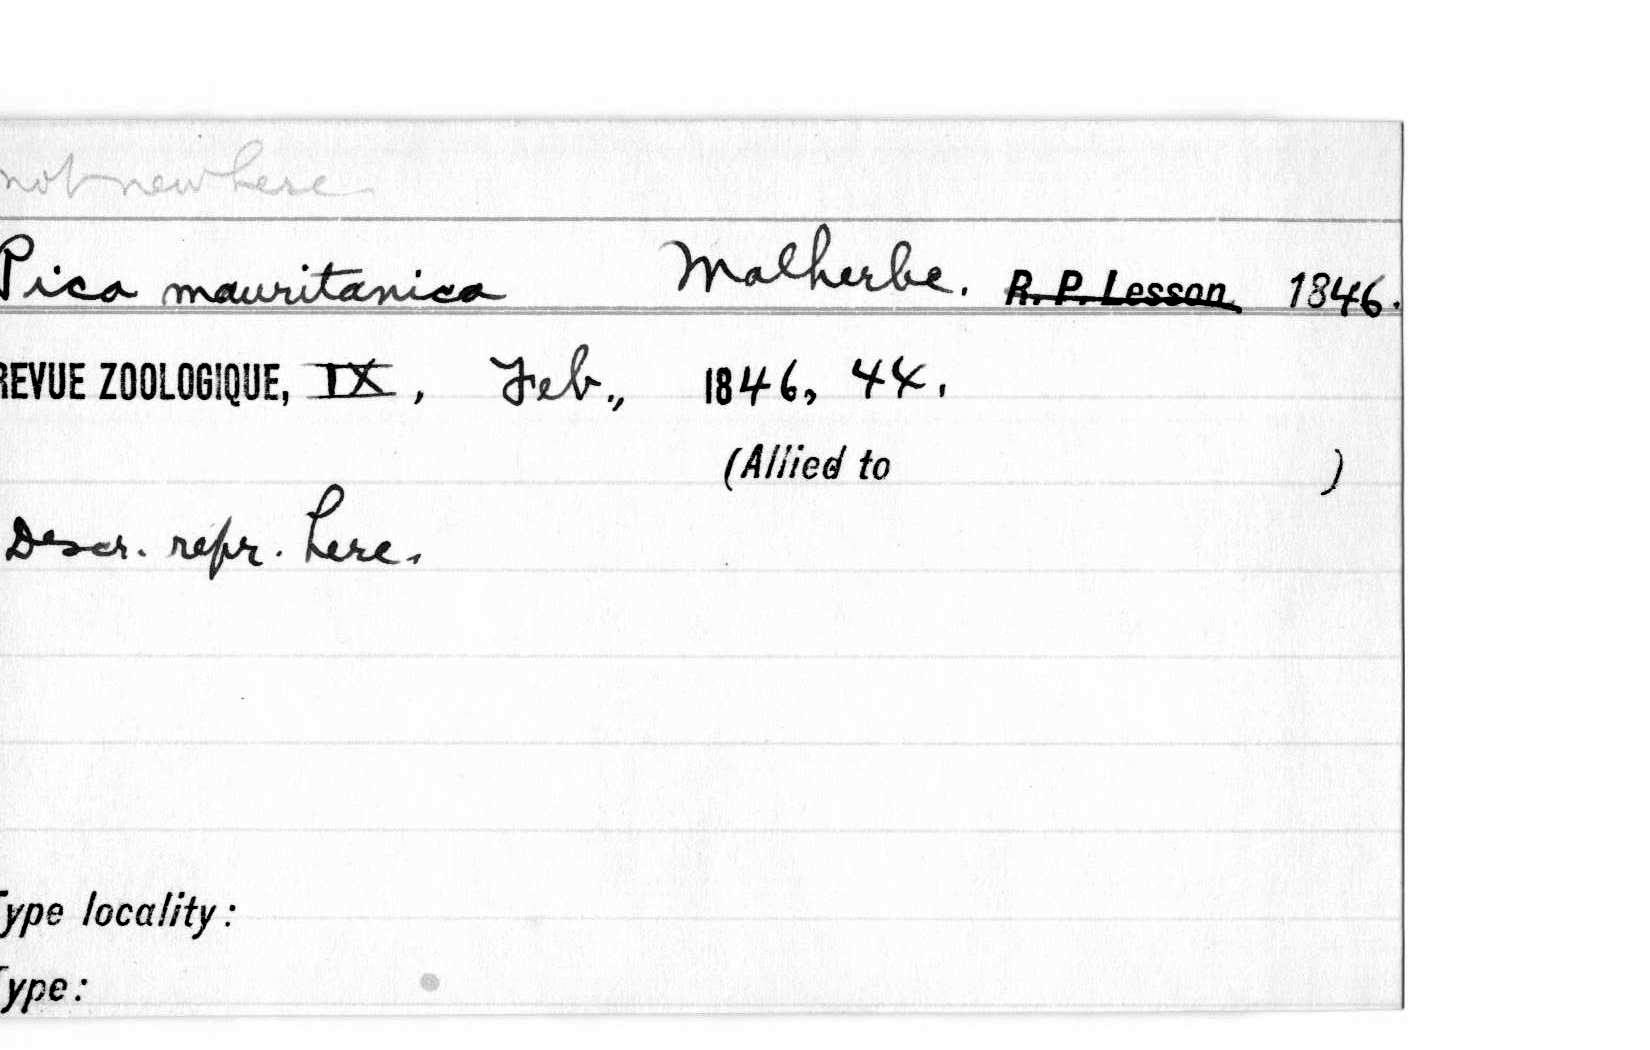 not new here
Pica mauritanica Malherbe. R. P. Lesson 1846.
REVUE ZOOLOGIQUE, IX, Feb., 1846, 44.
(Allied to )
Descr. repr. here.
Type locality:
Type: